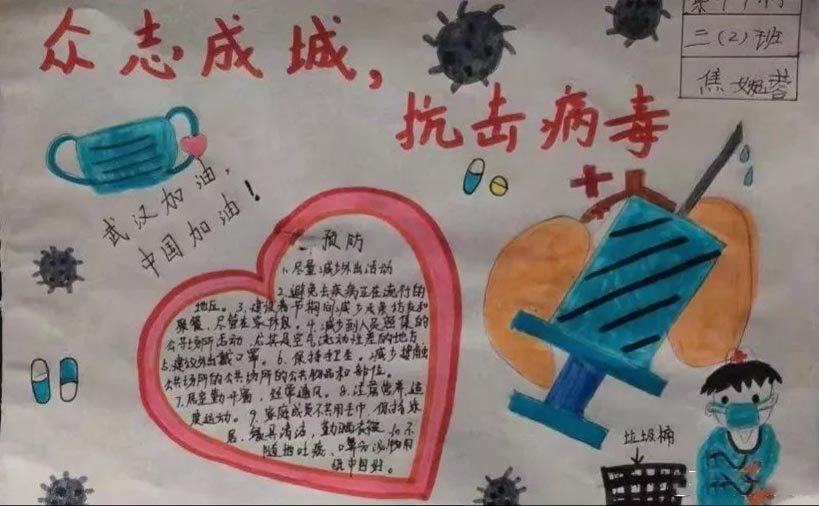 众志成城，
抗击病毒
二(2)班
焦婉蓉
武汉加油，
中国加油！
一预防
1.尽量减少外出活动
2.避免去疾病正在流行的
地区。3.建议春节期间减少走亲访友和
聚餐，尽量在家休息。4.减少到人员密集的
公共场所活动，尤其是空气流动性差的地方
5.建议外出戴口罩。6.保持手卫生。减少接触
公共场所的公共场所的公共物品和部位。
7.居室勤开窗，经常通风。8.注意营养适
度运动。9.家庭成员不共用毛巾，保持家
居、餐具清洁，勤晒衣被。10.不
随地吐痰，口鼻分泌物用
纸巾包好。
垃圾桶